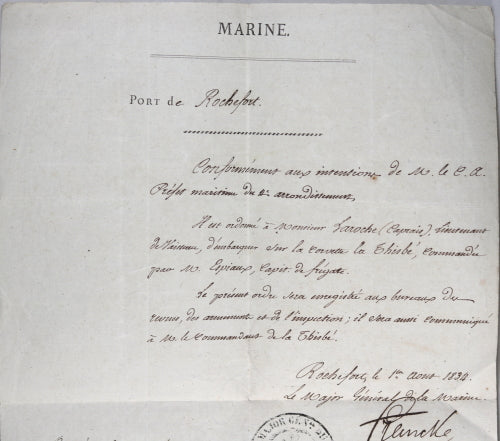 MARINE.
PORT de Rochefort.
Conformément aux intentions de M. le C. A.
Préfet maritime du 4e arrondissement,
Il est ordonné à Monsieur Laroche (Cyprais), lieutenant
de Vaisseau, d'embarquer sur la Corvette la Thisbé, commandée
par M. Epiaux, Capit. de frégate.
Le présent ordre sera enregistré aux bureaux des
revues, des armemens et de l'inspection; il sera aussi communiqué
à M. le Commandant de la Thisbé.
Rochefort, le 1er Août 1834.
Le Major Général de la Marine
MAJOR GÉN